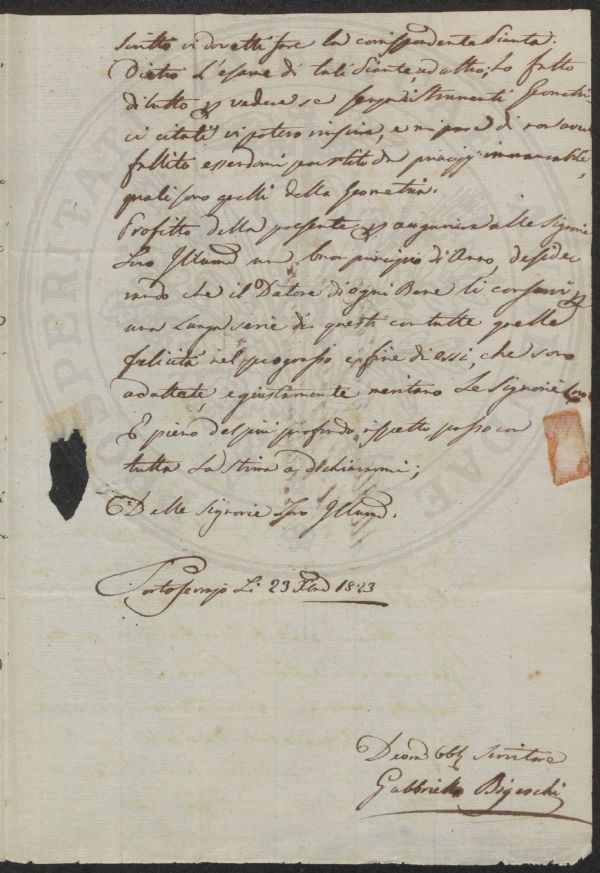 scritto vi dovetti fare la corrispondente Pianta.
Dietro L'esame di tali Piante, ed altro, ho fatto
di tutto p vedere se senza istrumenti Geometri=
ci citati vi potevo riuscire, e mi pare di non aver
fallito essendomi partito da principj immancabili,
quali sono quelli della Geometria.
Profitto della presente p augurare alle Signorie
Loro Illume un buon principio di Anno, deside=
rando che il Datore di ogni Bene li conservi p
una Lunga serie di questi con tutte quelle
felicità nel progresso e fine di essi, che sono
adattate, e giustamente meritano Le Signorie Loro
E pieno del più profondo rispetto passo con
tutta La stima a dichiararmi;
Delle Signorie Loro Illume.
Portoferrajo Li 23 Xbre 1823
Devmo Obbo Servitore
Gabbriello Bigeschi
PROSPERITAT